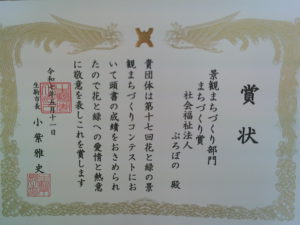 賞状
景観まちづくり部門
まちづくり賞
社会福祉法人
ぷろぼの 殿
貴団体は第十七回花と緑の景
観まちづくりコンテストにお
いて頭書の成績をおさめられ
たので花と緑への愛情と熱意
に敬意を表しこれを賞します
令和七年五月十一日
生駒市長 小紫雅史